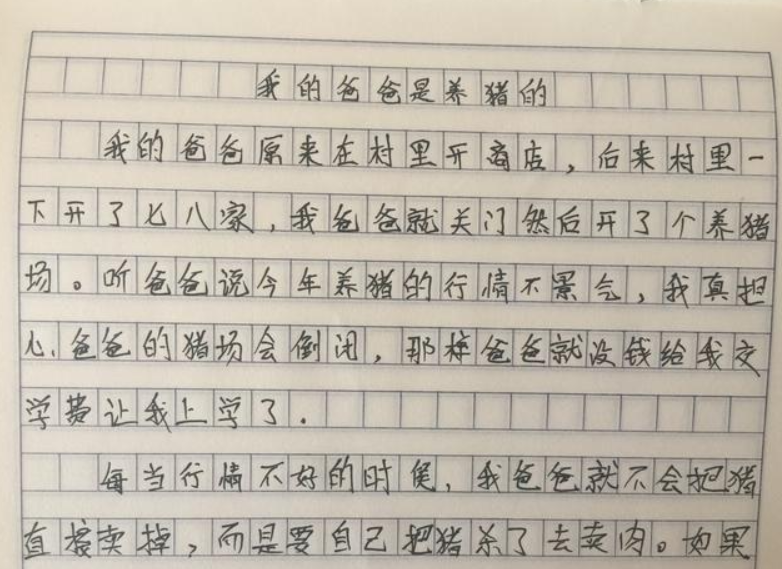 我的爸爸是养猪的
我的爸爸原来在村里开商店，后来村里一
下开了七八家，我爸爸就关门然后开了个养猪
场。听爸爸说今年养猪的行情不景气，我真担
心爸爸的猪场会倒闭，那样爸爸就没钱给我交
学费让我上学了.
每当行情不好的时候，我爸爸就不会把猪
直接卖掉，而是要自己把猪杀了去卖肉。如果